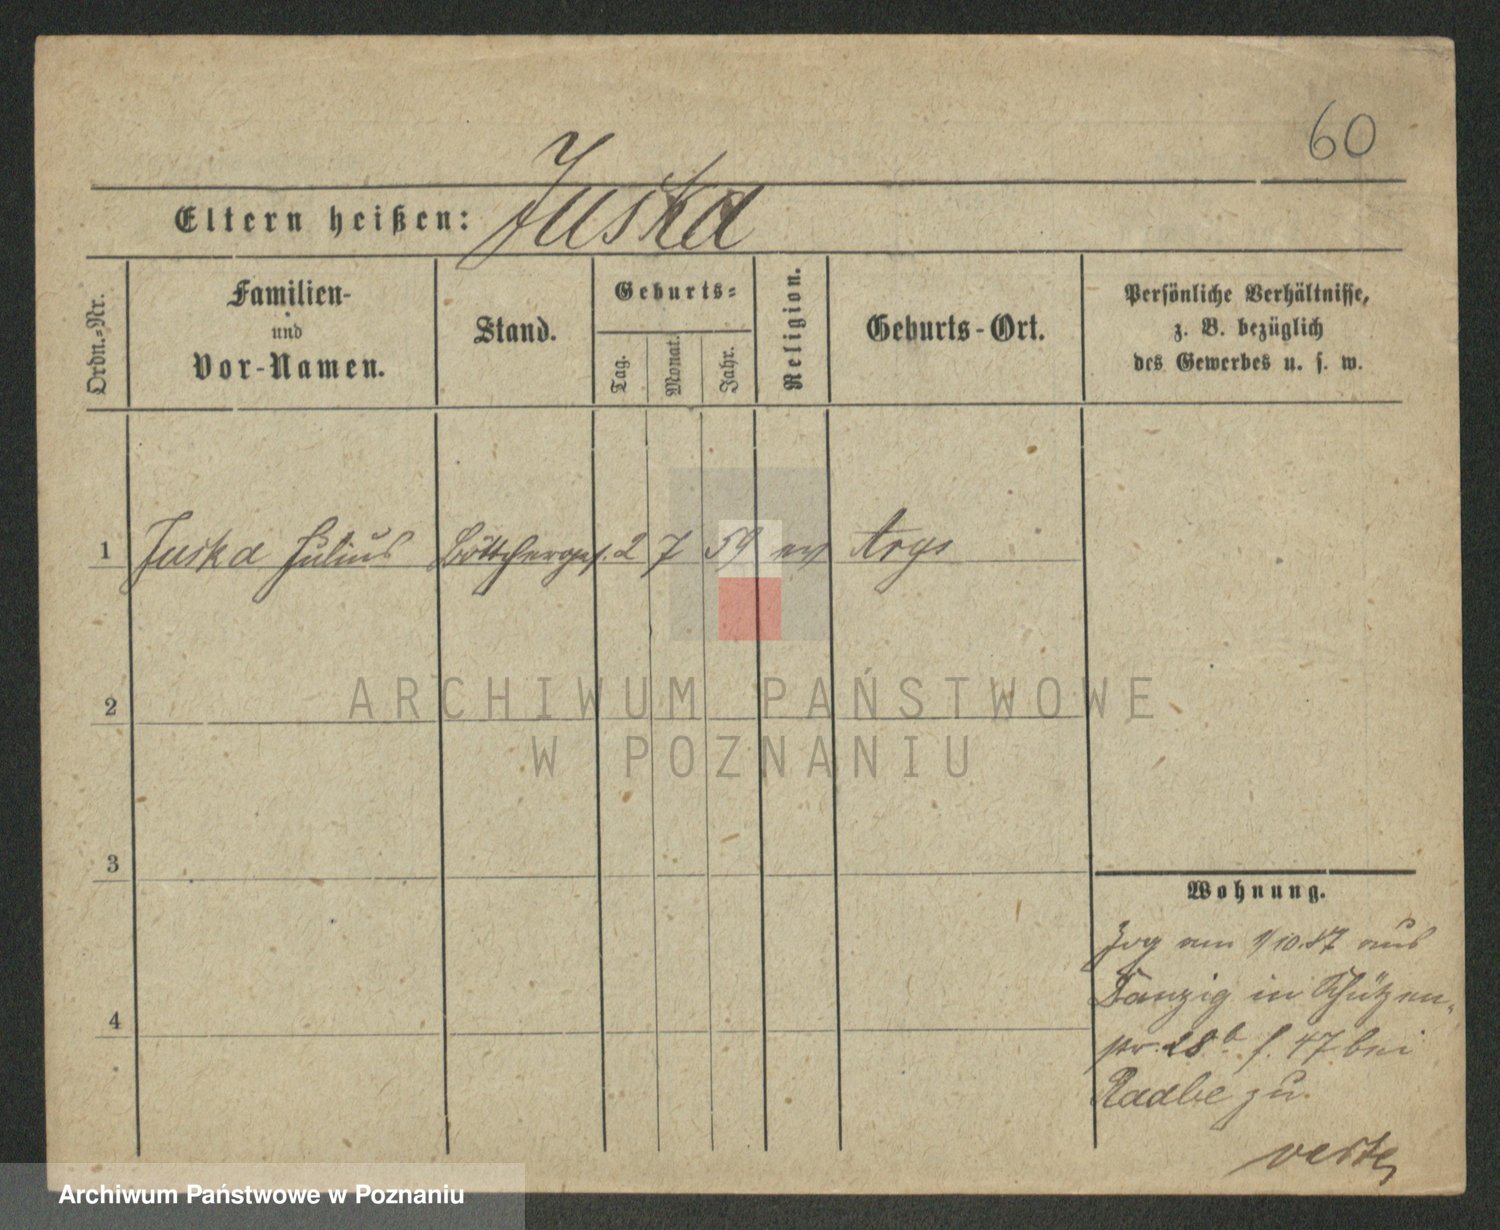 60
Eltern heißen: Juska
Ordn.-Nr.
Familien-
und
Vor-Namen.
Stand.
Geburts-
Tag.
Monat.
Jahr.
Religion.
Geburts-Ort.
Persönliche Verhältnisse,
z. B. bezüglich
des Gewerbes u. s. w.
1 Juska Julius Böttcherges. 2 7 59 ev Arys
2
3
4
Wohnung.
Zog am 1/10.87 aus
Danzig in Schützen-
str. 28b f. 47 bei
Raabe zu.
ARCHIWUM PAŃSTWOWE
W POZNANIU
Archiwum Państwowe w Poznaniu